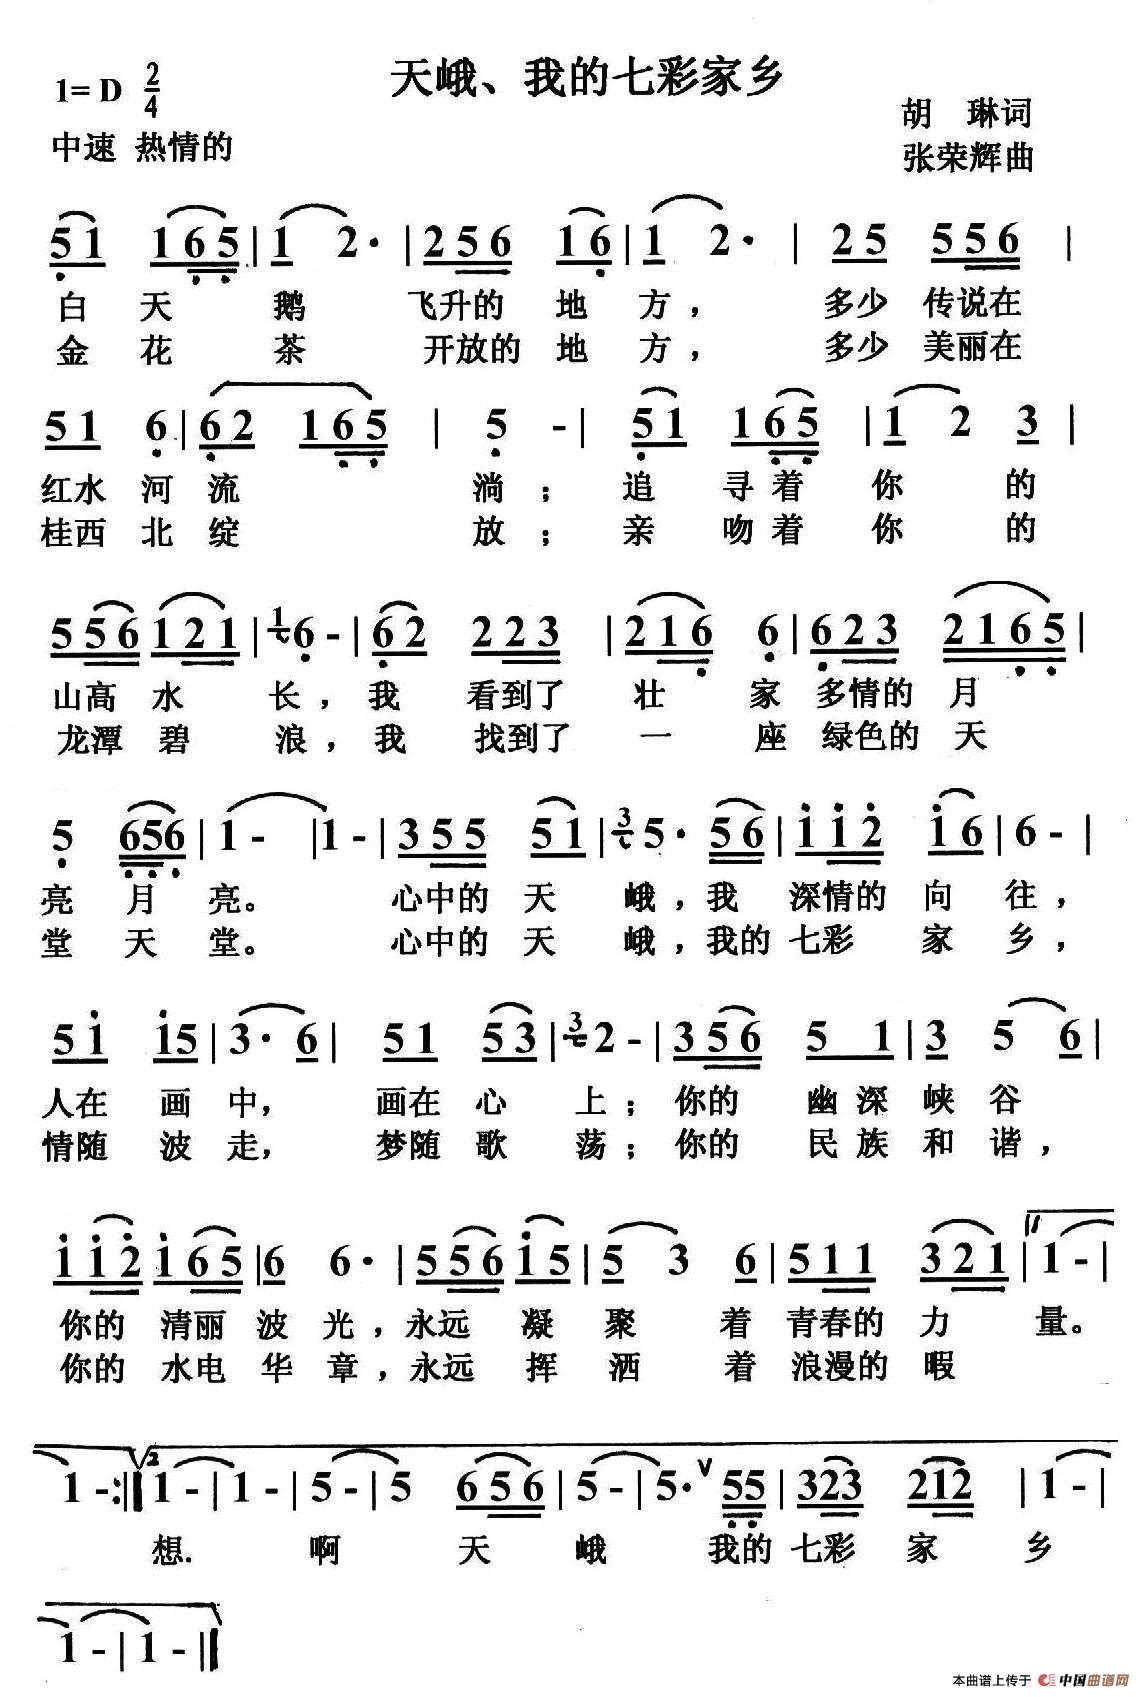 天峨、我的七彩家乡
1=D 2/4
中速 热情的
胡 琳词
张荣辉曲
5 1 1 6 5 | 1 2· | 2 5 6 1 6 | 1 2· | 2 5 5 5 6 |
白 天 鹅 飞升的 地 方， 多少 传说在
金 花 茶 开放的 地 方， 多少 美丽在
5 1 6 | 6 2 1 6 5 | 5 - | 5 1 1 6 5 | 1 2 3 |
红水 河 流 淌； 追 寻 着 你 的
桂西 北 绽 放； 亲 吻 着 你 的
5 5 6 1 2 1 | 1 6 - | 6 2 2 2 3 | 2 1 6 6 | 6 2 3 2 1 6 5 |
山高 水 长，我 看到了 壮 家 多情的 月
龙潭 碧 浪，我 找到了 一 座 绿色的 天
5 6 5 6 | 1 - | 1 - | 3 5 5 5 1 | 3 5· 5 6 | 1 1 2 1 6 | 6 - |
亮 月 亮。 心中的 天 峨，我 深情的 向 往，
堂 天 堂。 心中的 天 峨，我的 七彩 家 乡，
5 1 1 5 | 3· 6 | 5 1 5 3 | 3 2 - | 3 5 6 5 1 | 3 5 6 |
人在 画 中， 画在 心 上；你的 幽 深 峡 谷
情随 波 走， 梦随 歌 荡；你的 民 族 和 谐，
1 1 2 1 6 5 | 6 6· | 5 5 6 1 5 | 5 3 6 | 5 1 1 3 2 1 | 1 1 - |
你的 清丽 波 光，永远 凝 聚 着 青春的 力 量。
你的 水电 华 章，永远 挥 洒 着 浪漫的 暇
1 - :‖ 2 1 - | 1 - | 5 - | 5 6 5 6 | 5 - | 5· ∨ 5 5 | 3 2 3 2 1 2 | 1 - |
想. 啊 天 峨 我的 七彩 家 乡
1 - | 1 - ‖
本曲谱上传于 中国曲谱网